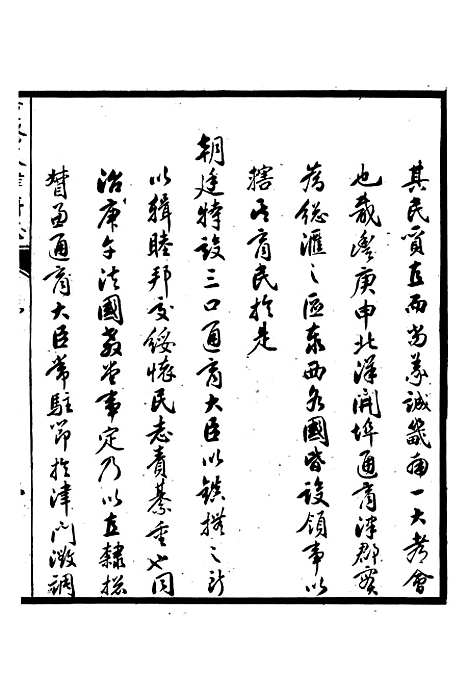 其民質直而尚義誠畿南一大都會
也哉豐庚申北洋開埠通商津郡實
為總滙之區泰西各國皆設領事以
轄其商民於是
朝廷特設三口通商大臣以鎮撫之所
以輯睦邦交綏懷民志責綦重也同
治庚午法國教堂事定乃以直隸總
督兼通商大臣常駐節於津門徵調